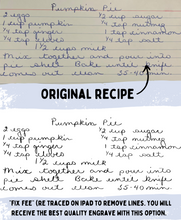 Pumpkin Pie
2 eggs 1/2 cup sugar
1 cup pumpkin 1/4 tsp nutmeg
1/4 tsp ginger 1 tsp cinnamon
1/4 tsp cloves 1/4 tsp salt
1 1/2 cups milk
Mix together and pour into
pie shell. Bake until knife
comes out clean 35-40 min
ORIGINAL RECIPE
Pumpkin Pie
2 eggs 1/2 cup sugar
1 cup pumpkin 1/4 tsp nutmeg
1/4 tsp ginger 1 tsp cinnamon
1/4 tsp cloves 1/4 tsp salt
1 1/2 cups milk
Mix together and pour into
pie shell. Bake until knife
comes out clean 35-40 min
"FIX FEE" (RE TRACED ON IPAD TO REMOVE LINES. YOU WILL
RECEIVE THE BEST QUALITY ENGRAVE WITH THIS OPTION.